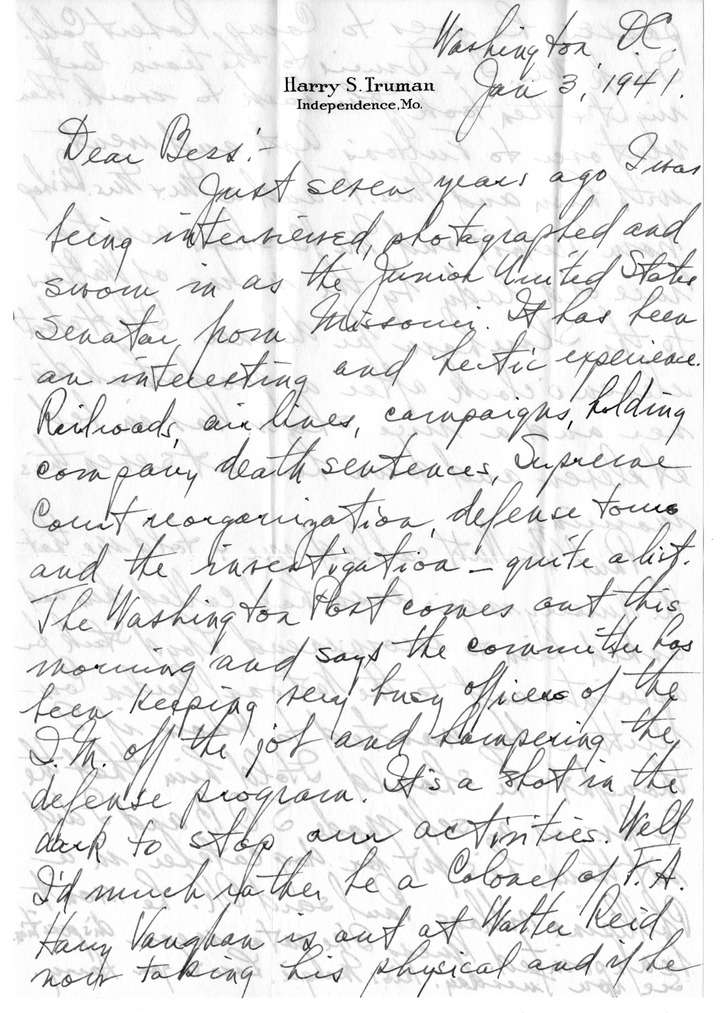 Washington, D.C.
Jan 3, 1941.
Harry S. Truman
Independence, Mo.
Dear Bess:-
Just seven years ago I was
being interviewed, photographed and
sworn in as the Junior United States
Senator from Missouri. It has been
an interesting and hectic experience.
Railroads, air lines, campaigns, holding
company death sentences, Supreme
Court reorganization, defense
and the investigation - quite a list.
The Washington Post comes out this
morning and says the committee has
been keeping very busy officers of the
O.P.M. off the job and hampering the
defense program. It's a shot in the
dark to stop our activities. Well
I'd much rather be a Colonel of F.A.
Harry Vaughan is out at Walter Reid
now taking his physical and if he